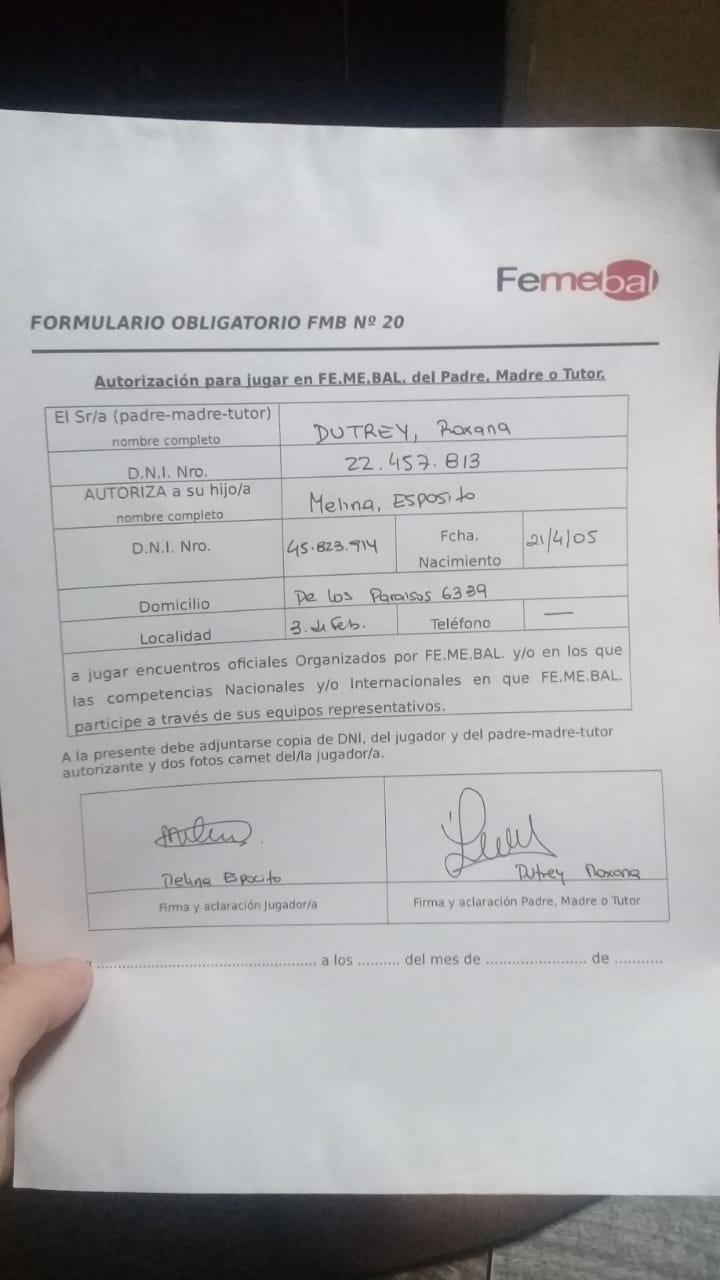 Femebal
FORMULARIO OBLIGATORIO FMB Nº 20
Autorización para jugar en FE.ME.BAL. del Padre, Madre o Tutor.
El Sr/a (padre-madre-tutor)
nombre completo
DUTREY, Roxana
D.N.I. Nro.
22.457.813
AUTORIZA a su hijo/a
nombre completo
Melina, ESPOSITO
D.N.I. Nro.
45.823.914
Fcha.
Nacimiento
21/4/05
Domicilio
De los Paraisos 6339
Localidad
3. de Feb.
Teléfono
—
a jugar encuentros oficiales Organizados por FE.ME.BAL. y/o en los que
las competencias Nacionales y/o Internacionales en que FE.ME.BAL.
participe a través de sus equipos representativos.
A la presente debe adjuntarse copia de DNI, del jugador y del padre-madre-tutor
autorizante y dos fotos carnet del/la jugador/a.
Melina Esposito
Dutrey Roxana
Firma y aclaración Jugador/a
Firma y aclaración Padre, Madre o Tutor
........................ a los ......... del mes de ...................... de ..........